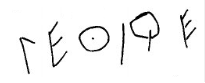 ΓΕʘΙϘΕ